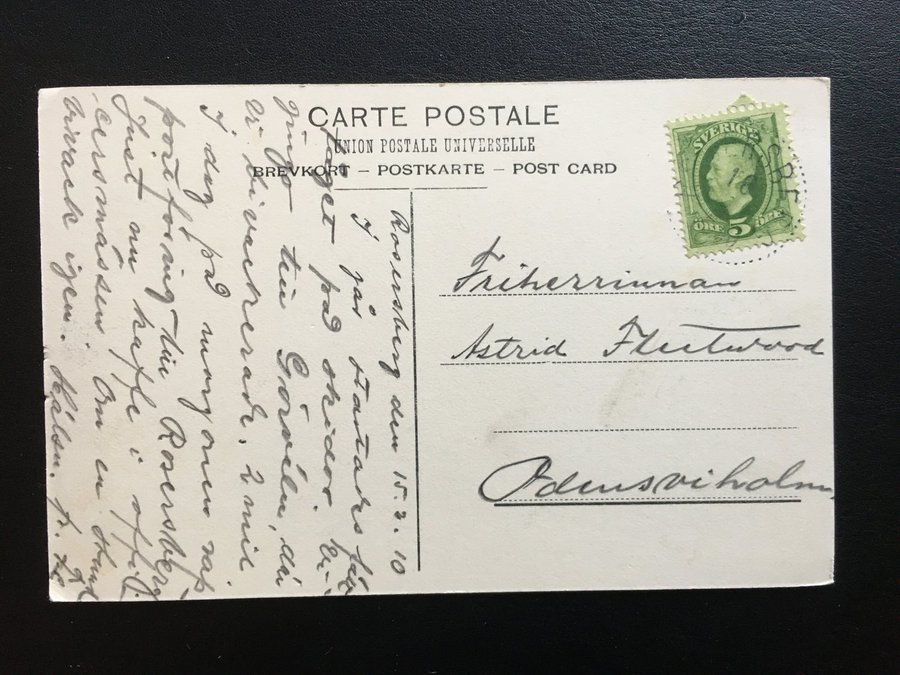 CARTE POSTALE
UNION POSTALE UNIVERSELLE
BREVKORT – POSTKARTE – POST CARD
SVERIGE
ÖRE 5 ÖRE
Friherrinnan
Astrid Fleetwood
Odensviholm
Rosersberg den 15.2.10
I går startades från
taget på skidor
gingo till Görväln, där
vi bivackerade. 2 mil
I dag på morgonen
fortsning till Rosersberg
Just nu kaffe i
mässen. Om en stund
bivack igen. Hälsn.